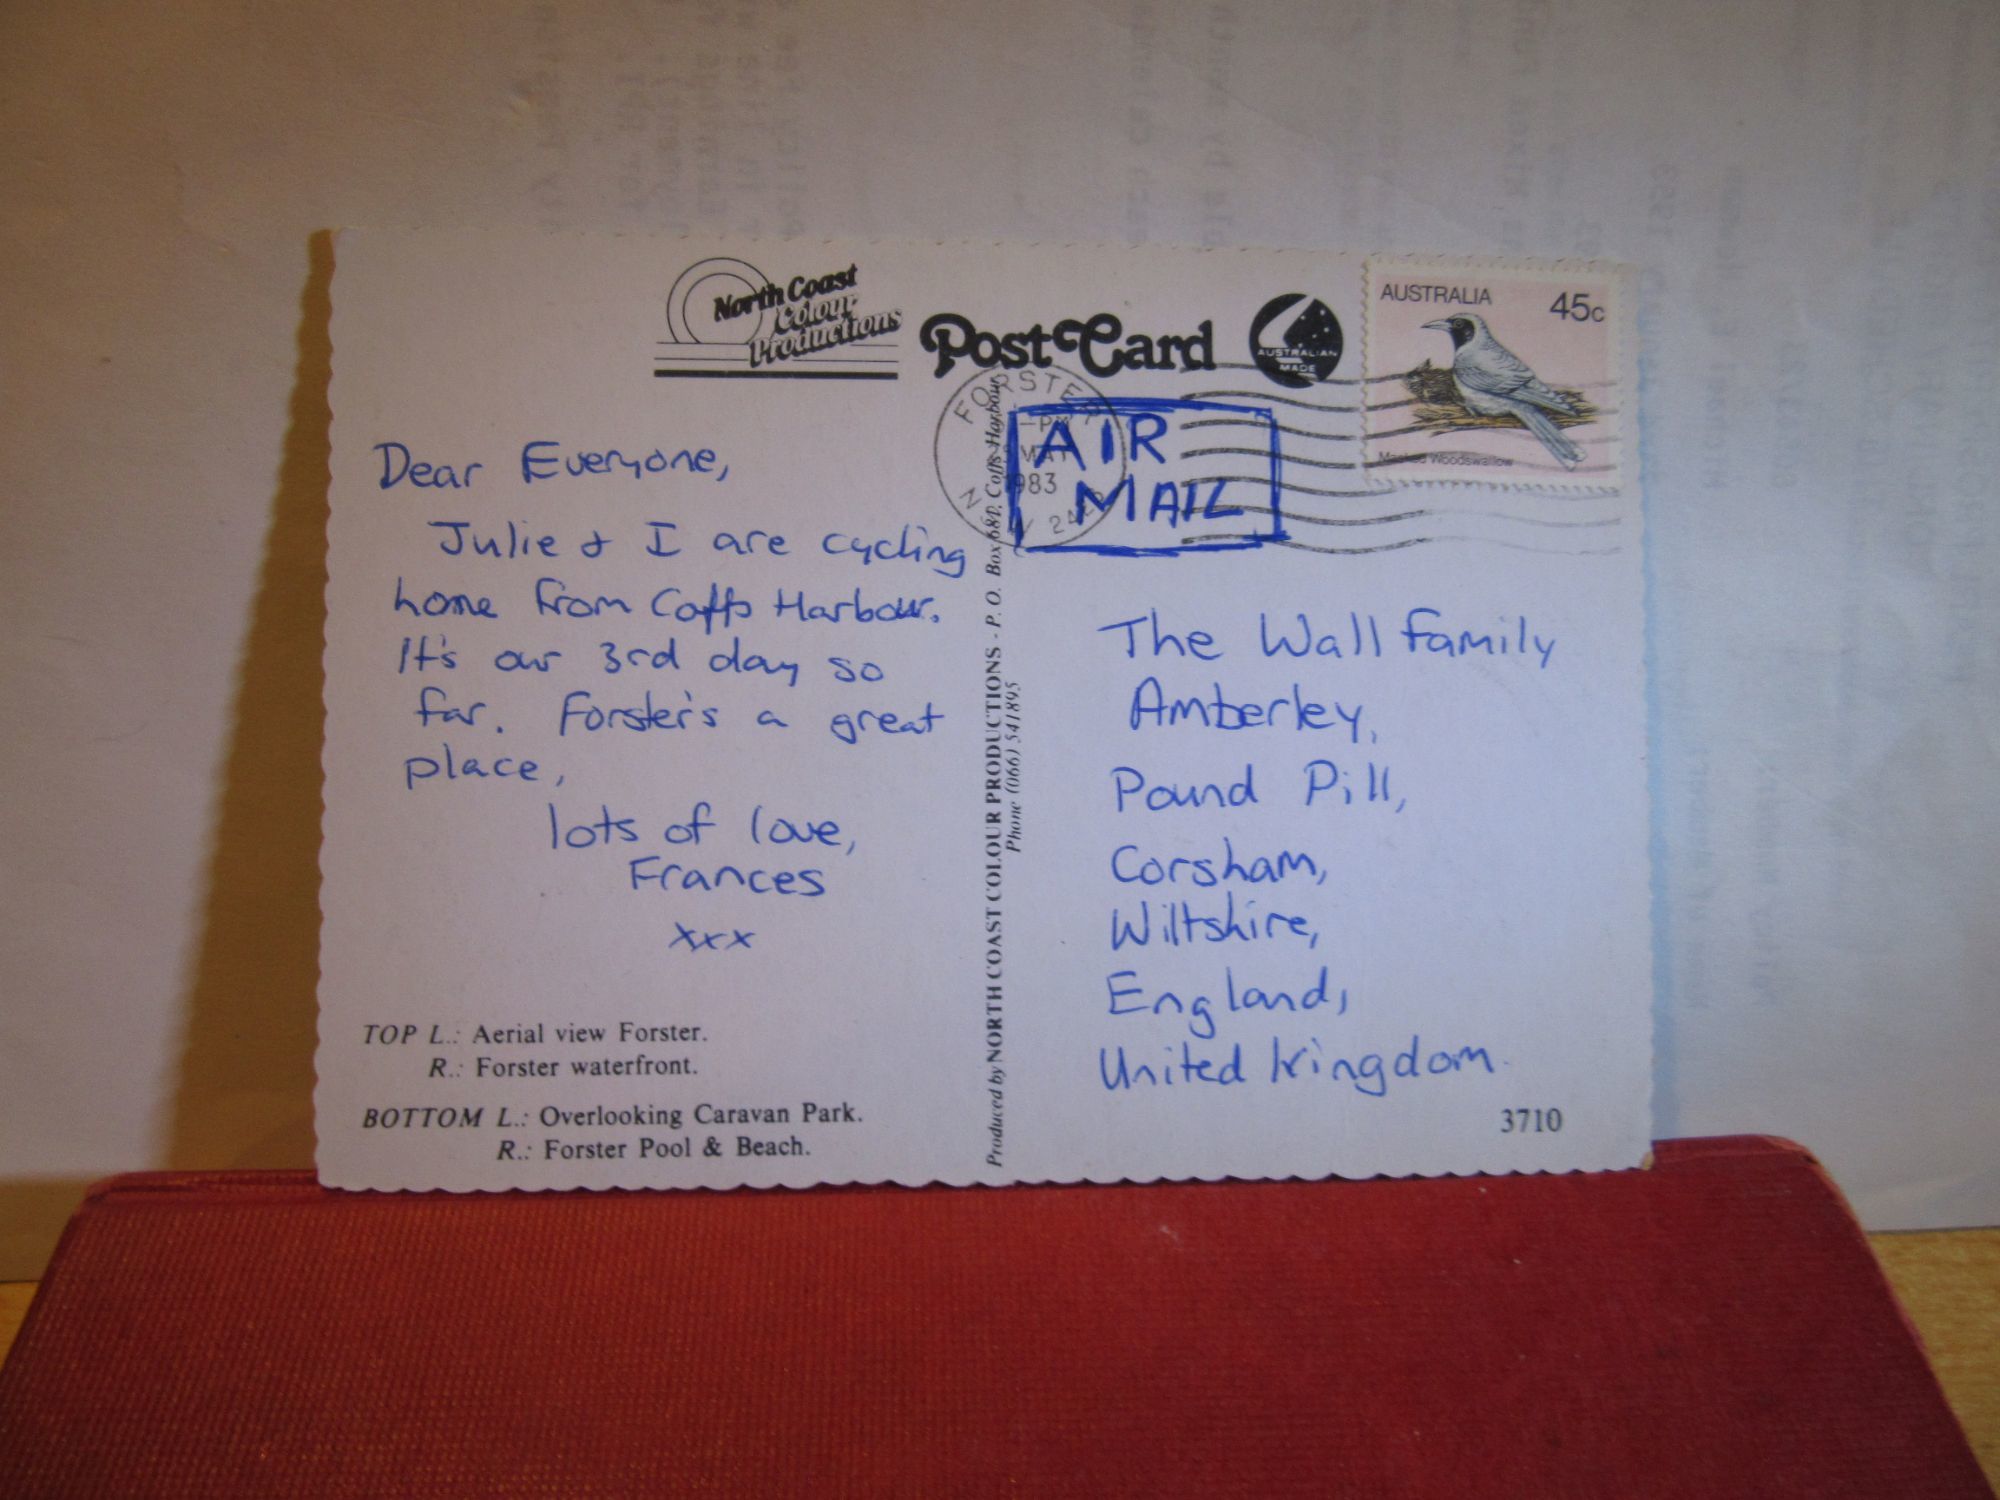 North Coast
Colour
Productions
PostCard
AUSTRALIAN
MADE
AUSTRALIA 45c
Masked Woodswallow
FORSTER
-PM
MAY
1983
N.S.W. 2428
AIR
MAIL
Dear Everyone,
Julie & I are cycling
home from Coffs Harbour.
It's our 3rd day so
far. Forster's a great
place,
lots of love,
Frances
xxx
TOP L.: Aerial view Forster.
R.: Forster waterfront.
BOTTOM L.: Overlooking Caravan Park.
R.: Forster Pool & Beach.
Produced by NORTH COAST COLOUR PRODUCTIONS - P. O. Box 681, Coffs Harbour
Phone (066) 541895
The Wall family
Amberley,
Pound Pill,
Corsham,
Wiltshire,
England,
United Kingdom.
3710